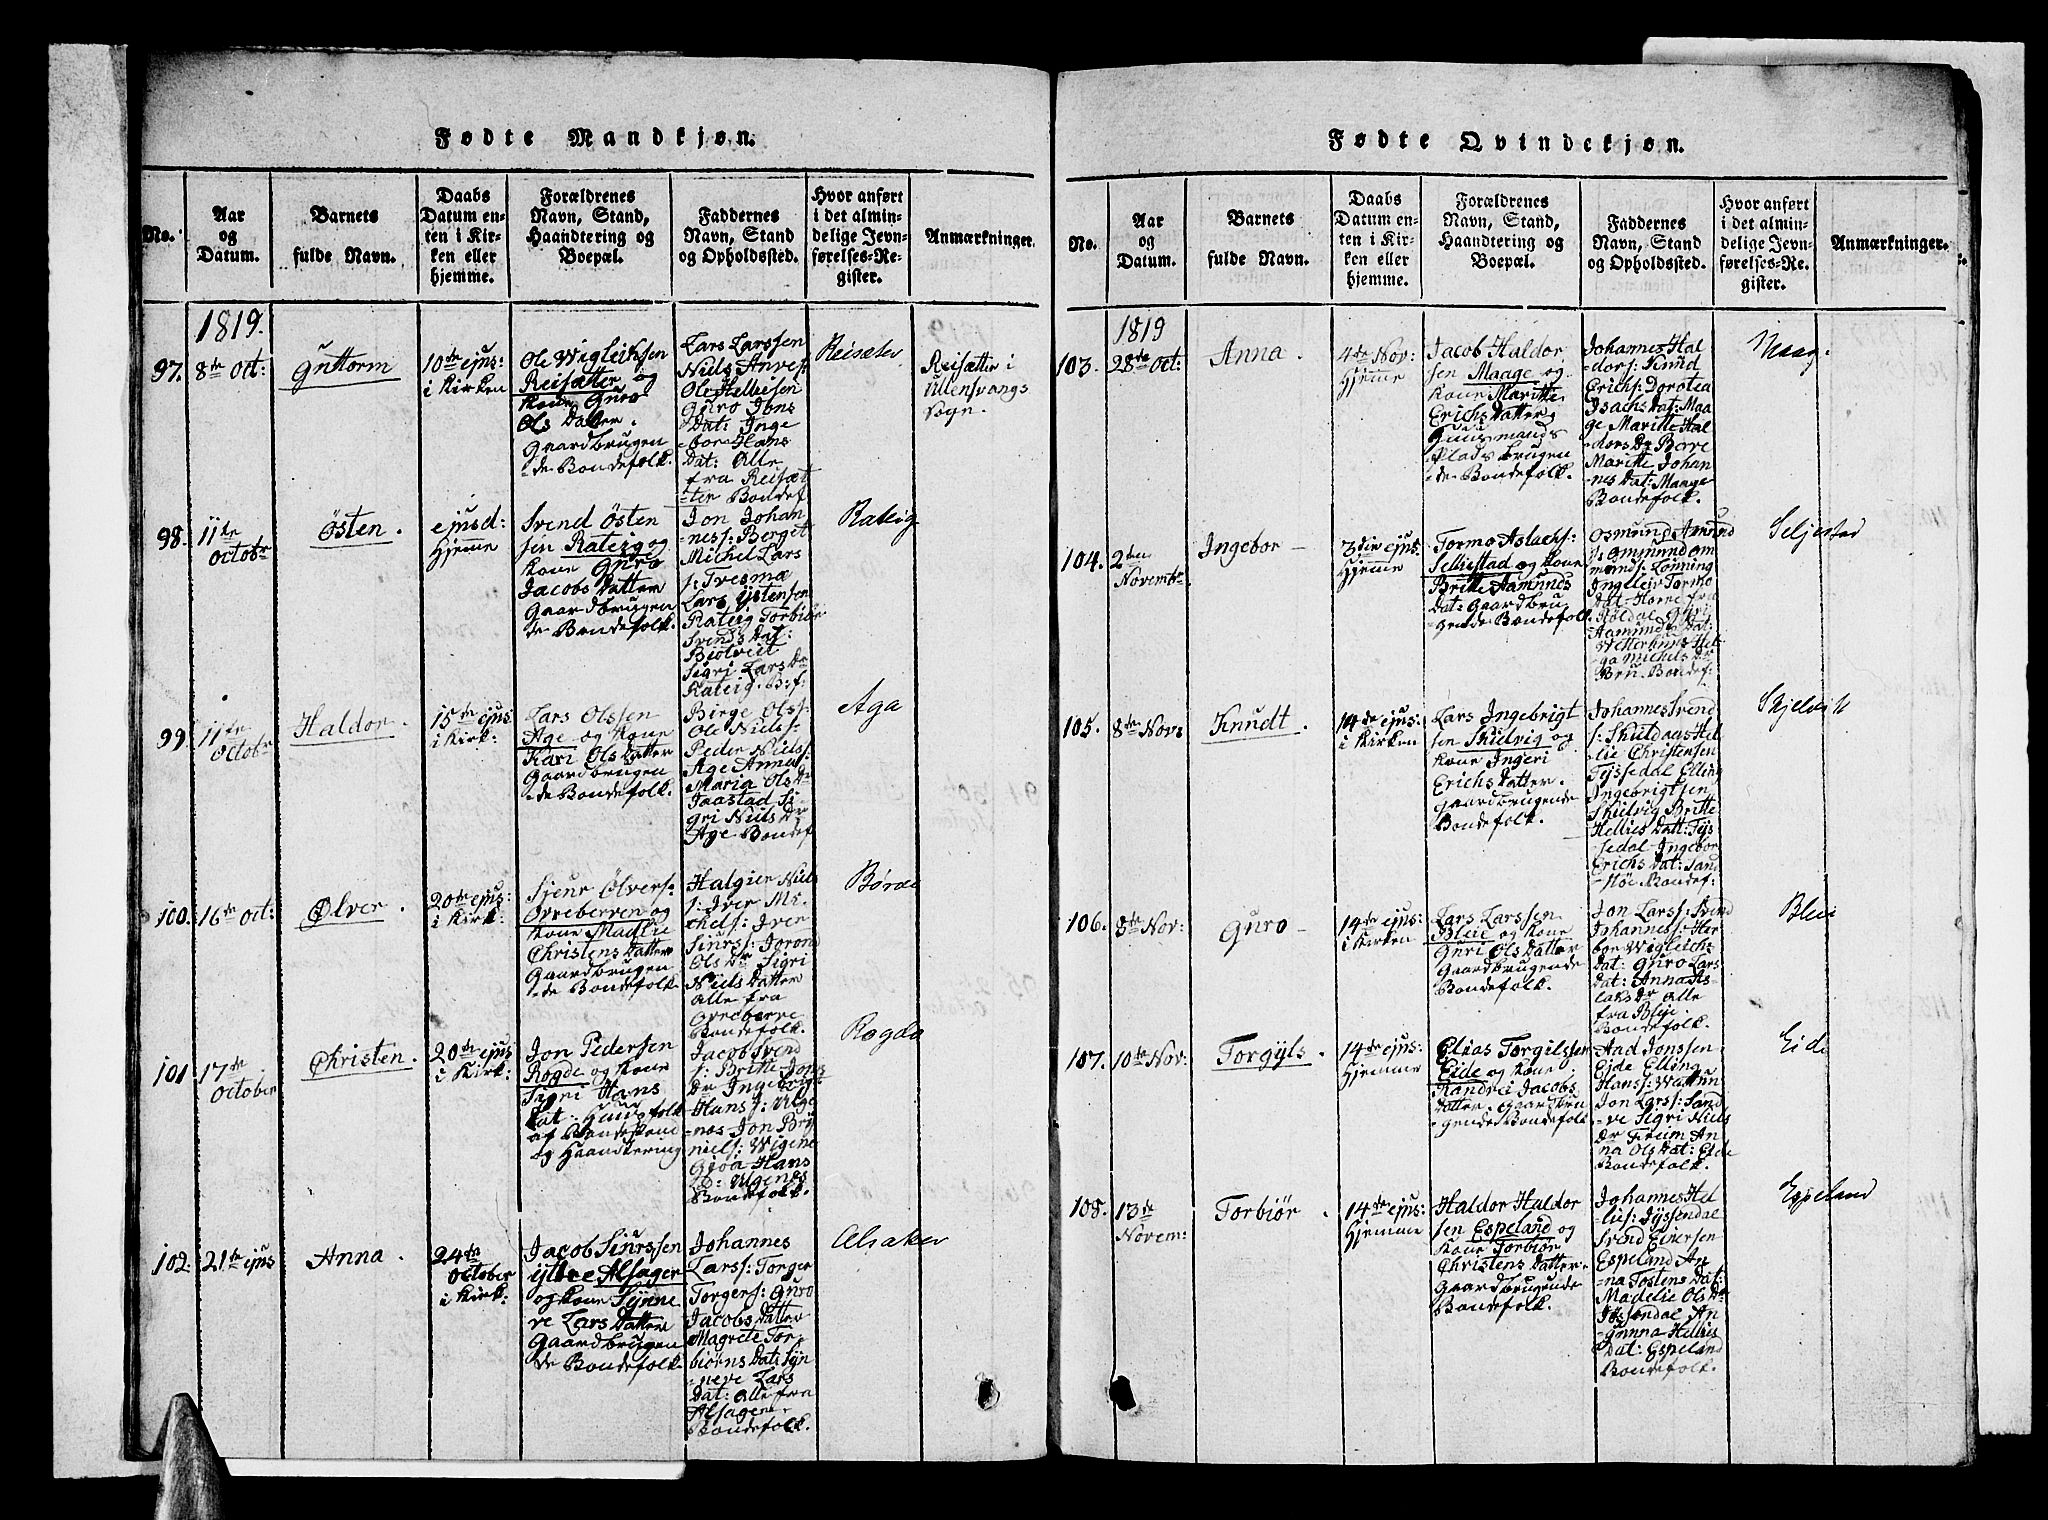 Fødte Mandkjøn.
No.
Aar
og
Datum.
Barnets
fulde Navn.
Daabs
Datum en-
ten i Kir-
ken eller
hjemme.
Forældrenes
Navn, Stand,
Haandtering og
Boepæl.
Faddernes
Navn, Stand
og Opholdssted.
Hvor anført
i det almin-
delige Jevn-
førelses-Re-
gister.
Anmærkninger.
1819.
97.
8de Oct:
Guttorm
10de ejus:
i Kirken
Ole Wigleiksen
Reisætter og
Kone Guro
Ols Datter.
Gaardbrugen
-de Bondefolk.
Lars Larssen
Niels
Ole Hellresen
Guro Jons
Dat: Inge
-bor Hans
Dat: Alle
fra Reisæt
-ter Bondef
Reiseter
Reisætter i
Ullensvangs
Sogn.
98.
11te
Octobr
Östen.
ejusd:
Hjemme
Svend Östen
sen Rateig og
Kone Guro
Jacobs Datter
Gaardbrugen
de Bondefolk.
Jon Johan
ness: Berget
Michel Lars
s: Tresmæ
Lars Östensen
Rateig Torbiör
Svends Dat:
Biotveit
Sigri Lars Dr
Rateig. B:f:
Rateig
99.
11te
Octobr
Haldor.
15de ejus:
i Kirk:
Lars Olssen
Age og Kone
Kari Ols Datter
Gaardbrugen
-de Bondefolk.
Birge Olss:
Ole Niels:
Peder Nielss:
Age Anna
Maria Ols Dr
Jaastad Si
gri Niels Dr
Age Bondef
Aga
100.
16de Oct:
Ölver.
20de ejus:
i Kirk:
Sjeur Ölvers:
Ovreberven og
Kone Madlie
Christens Datter
Gaardbrugen
-de Bondefolk
Halgier Niels
s: Iver Mi
chels: Iver
Siurs: Jorond
Ols Dr Sigri
Niels Datter
Alle fra
Ovreberve
Bondefolk.
Børve
101
17de
October
Christen.
20de ejus
i Kirk:
Jon Pedersen
Rogde og Kone
Sigri Hans
Dat: Huusfolk
af Bondestand
og Haandtering
Jacob Svend
s: Britte Jons
Dr Ingebrigt
Hans s: Ulge
-næs Jon Bry
niels: Wigene
Gioa Hans
D: Ulgenes
Bondefolk.
Rogde
102.
21de ejus
Anna.
24de
October
i Kirk:
Jacob Siurssen
Yttre Alsager
og Kone Synne
ve Lars Datter
Gaardbrugen
de Bondefolk.
Johannes
Larss: Torger
Torgers: Guro
Jacobs Datter
Magrete Tor
biörns Dat: Syn
-neve Lars
Dat: Alle fra
Alsagener
Bondefolk.
Alsaker
Fødte Qvindekjøn.
No.
Aar
og
Datum.
Barnets
fulde Navn.
Daabs
Datum en-
ten i Kir-
ken eller
hjemme.
Forældrenes
Navn, Stand,
Haandtering og
Boepæl.
Faddernes
Navn, Stand
og Opholdssted.
Hvor anført
i det almin-
delige Jevn-
førelses-Re-
gister.
Anmærkninger.
1819
103.
28de Oct:
Anna.
4de Nov:
Hjemme
Jacob Haldor
sen Maage og
Kone Maritte
Erichs Datter
Huusmands
Plads brugen
-de Bondefolk.
Johannes Hal
dors: Knud
Erichs: Dorotea
Isachs Dat: Maa
ge Maritte Hal
dors Dr Berre
Maritte Johan
nes Dat: Maage
Bondefolk.
Maage
104.
2den
Novembr.
Ingebor
3die ejus:
Hjemme
Tormo Aslachs:
Selliestad og Kone
Britte Aamunds
Dat: Gaardbru
gende Bondefolk.
Osmund Aamund
s: Omund
: Lönning
Ingeleiv Tormo
Dat: Horre fra
Röldal Guri
Aamunds Dat:
Wetterhuus Hel
ga Michels Dr
Bru. Bondef:
Seljestad
105.
8de Nov:
Knudt.
14de ejus:
i Kirken
Lars Ingebrigt
sen Skielvig og
Kone Ingeri
Erichs Datter.
Gaardbrugende
Bondefolk.
Johannes Svend
s: Skuldaas Hel
lie Christensen
Tyssedal Elling
Ingebrigtsen
Skielvig Britte
Hellies Datt: Tys
sedal Ingebor
Erichs Dat: Sand
Bondef:
Skjelvik
106.
8de Nov:
Guro
14de ejus:
i Kirken
Lars Larssen
Bleie og Kone
Guri Ols Datter
Gaardbrugende
Bondefolk.
Jon Larss: Svend
Johannes: Her
bor Wigleich:
Dat: Guro Lars
Dat: Anna As
laks Dr Alle
fra Bleje.
Bondefolk.
Bleie
107.
10de Nov:
Torgyls.
14de ejus:
Hjemme
Elias Torgilssen
Eide og Kone
Randvei Jacobs
Datter. Gaardbru
gende Bondefolk
Aad Jonssen
Ejde Elling
Hanss: Wattun
Jon Larss: Sand
-ve Sigri Niels
Dr Frum An
na Ols Dat: Eide
Bondefolk.
Eide
108.
13de
Novem:
Torbiör.
14de ejus:
Hjemme
Haldor Haldor
sen Espeland og
Kone Torbiör
Christens Datter
Gaardbrugende
Bondefolk.
Johannes Hel
lies: Tyssendal
Svend Einersen
Espeland An
-na Tostens Dat:
Madelie Ols Dr
Tyssendal An
gunna Hellies
Dat: Espeland
Bondefolk.
Espeland